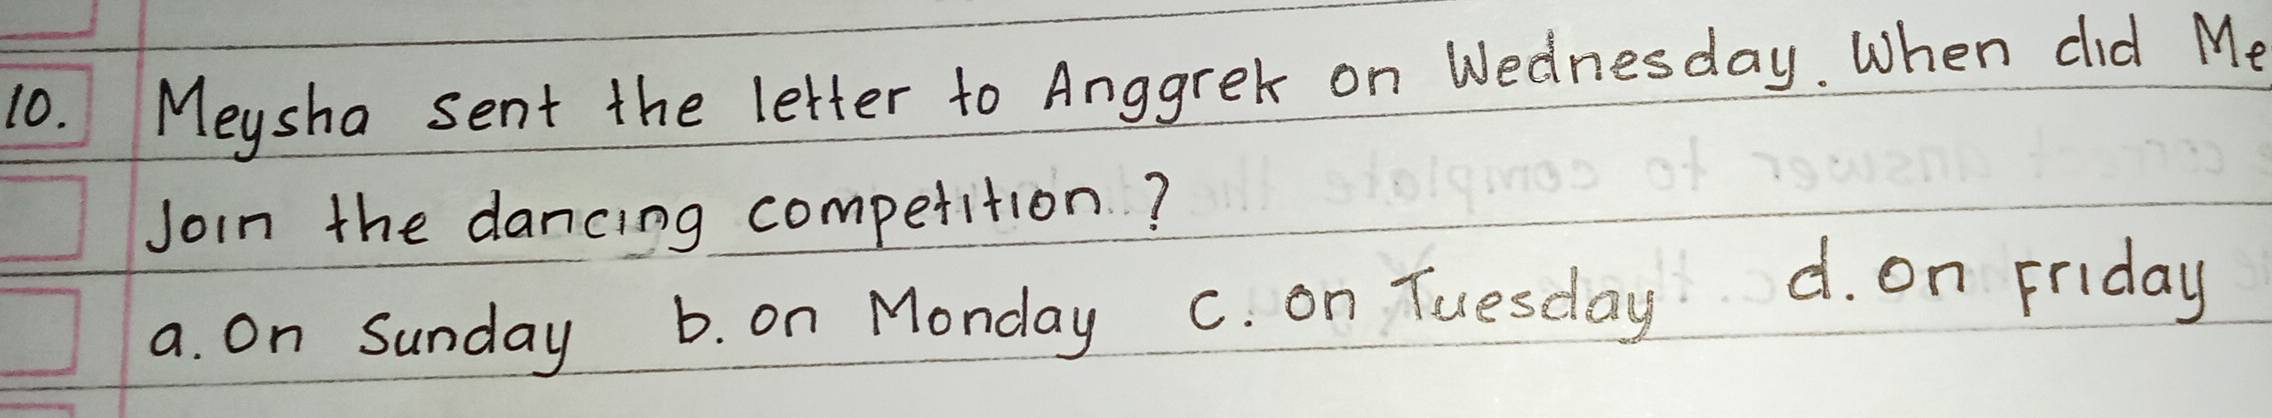 10. Meysha sent the letter to Anggrek on Wednesday. When did Me
Join the dancing competition..?
a. On Sunday b. on Monday c. on Tuesday d. on Friday